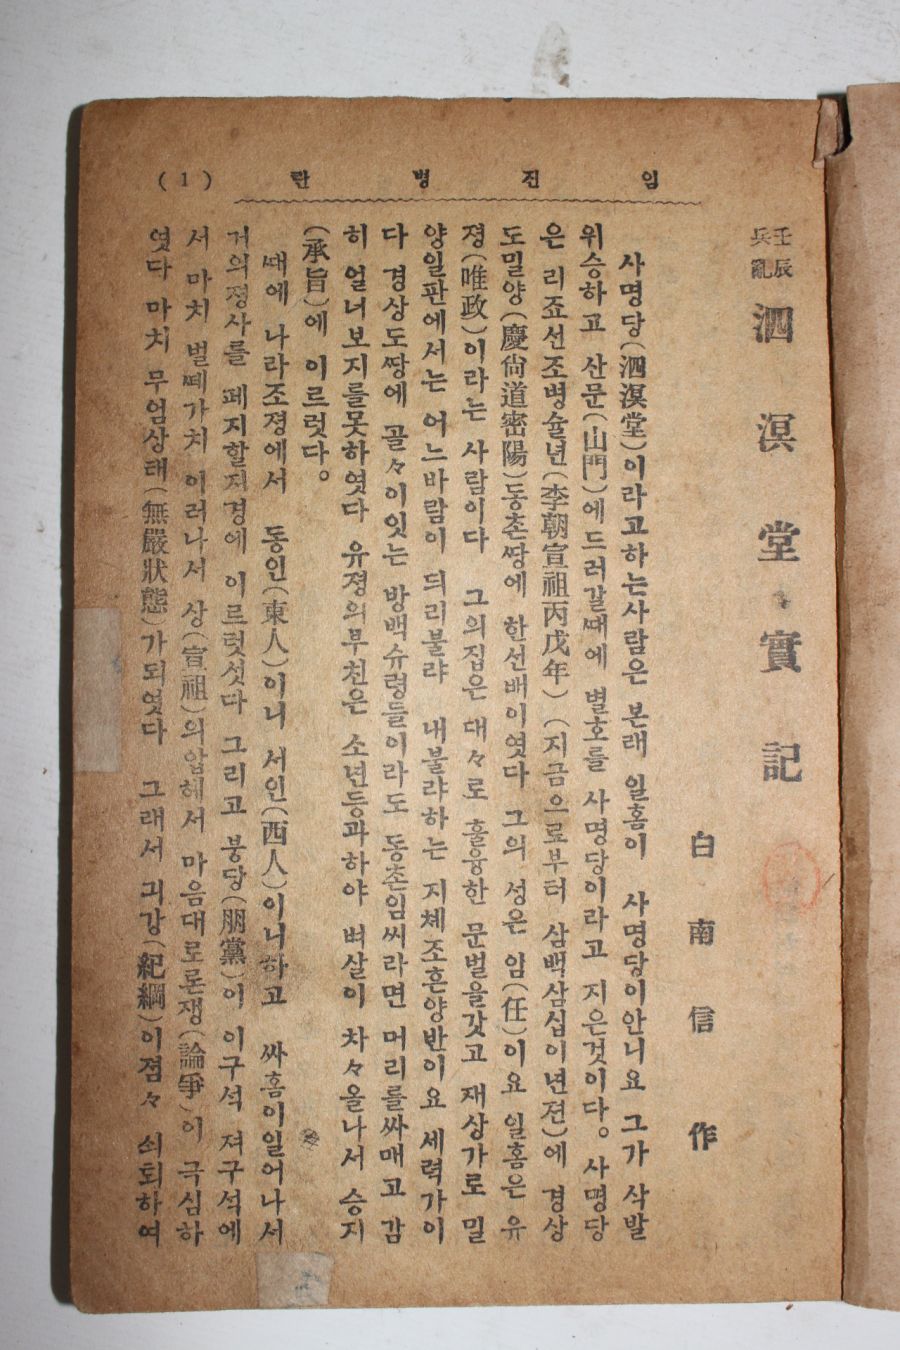 임진병란 (1)
壬辰兵亂 泗溟堂實記
白南信作
사명당(泗溟堂)이라고하는사람은 본래 일홈이 사명당이안니요 그가 삭발
위승하고 산문(山門)에드러갈때에 별호를 사명당이라고 지은것이다。사명당
은 리죠선조병슐년(李朝宣祖丙戊年) (지금으로부터 삼백삼십이년젼)에 경상
도밀양(慶尙道密陽)동촌땅에 한선배이엿다 그의 성은 임(任)이요 일홈은 유
졍(唯政)이라는 사람이다 그의집은 대々로 훌융한 문벌을갓고 재상가로 밀
양일판에서는 어느바람이 듸리불랴 내불랴하는 지체조흔양반이요 세력가이
다 경상도땅에 골々이잇는 방백슈령들이라도 동촌임씨라면 머리를싸매고 감
히 얼너보지를못하엿다 유졍의부친은 소년등과하야 벼살이 차々올나서 승지
(承旨)에 이르럿다。
때에 나라조졍에서 동인(東人)이니 서인(西人)이니하고 싸홈이일어나서
거의졍사를 폐지할지경에 이르럿섯다 그리고 붕당(朋黨)이 이구석 져구석에
서 마치 벌떼가치 이러나서 상(宣祖)의압헤서 마음대로론쟁(論爭)이 극심하
엿다 마치 무엄상태(無嚴狀態)가되엿다 그래서 긔강(紀綱)이졈々 쇠퇴하여